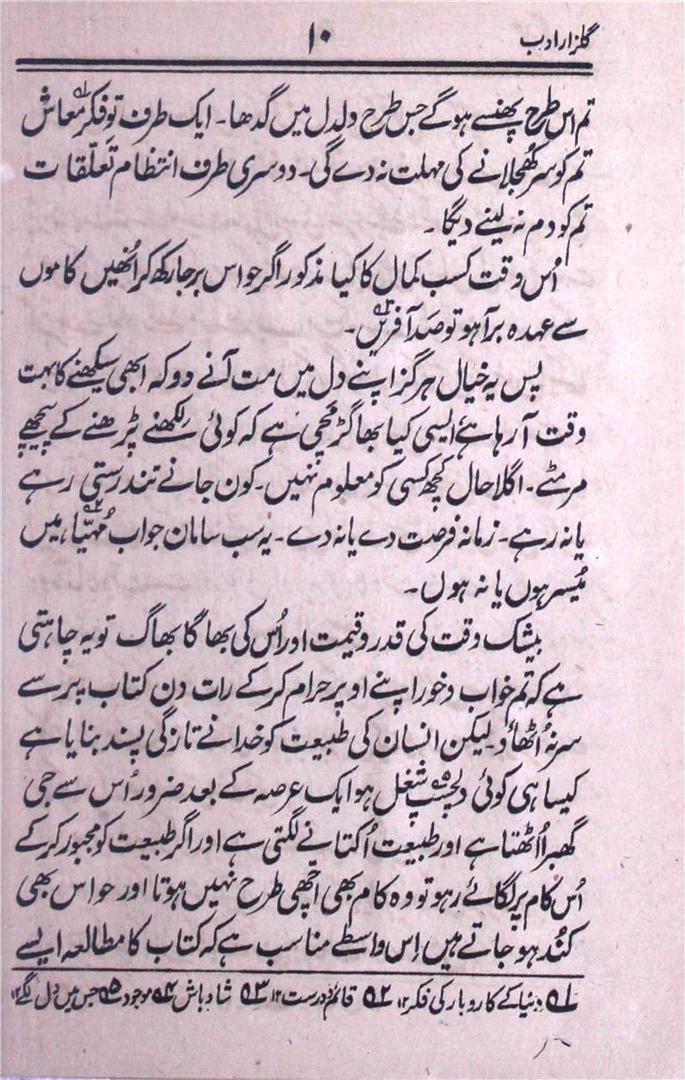 گلزار ادب ۱۰
تم اس طرح پھنسے ہوگے جس طرح دلدل میں گدھا۔ ایک طرف تو فکر معاش۱؎
تم کو سر کھجلانے کی مہلت نہ دے گی۔ دوسری طرف انتظام تعلّقات
تم کو دم نہ لینے دیگا۔
اُس وقت کسب کمال کا کیا مذکور اگر حواس برجا۲؎ رکھ کر اُنھیں کاموں
سے عہدہ برآ ہو تو صَد آفریں۳؎۔
پس یہ خیال ہرگز اپنے دل میں مت آنے دو کہ ابھی سیکھنے کا بہت
وقت آرہا ہے ایسی کیا بھاگڑ مچی ہے کہ کوئی لکھنے پڑھنے کے پیچھے
مرمٹے۔ اگلا حال کچھ کسی کو معلوم نہیں۔ کون جانے تندرستی رہے
یا نہ رہے۔ زمانہ فرصت دے یا نہ دے۔ یہ سب سامان جواب مُہیّا۴؎ ہیں
مُیسر ہوں یا نہ ہوں۔
بیشک وقت کی قدر و قیمت اور اُس کی بھاگا بھاگ تو یہ چاہتی
ہے کہ تم خواب و خور اپنے اوپر حرام کرکے رات دن کتاب پر سے
سر نہ اُٹھاؤ لیکن انسان کی طبیعت کو خدا نے تازگی پسند بنایا ہے
کیسا ہی کوئی دلچسپ۵؎ شغل ہو ایک عرصہ کے بعد ضرور اُس سے جی
گھبرا اُٹھتا ہے اور طبیعت اُکتانے لگتی ہے اور اگر طبیعت کو مجبور کرکے
اُس کام پر لگائے رہو تو وہ کام بھی اچھی طرح نہیں ہوتا اور حواس بھی
کُند ہو جاتے ہیں اِس واسطے مناسب ہے کہ کتاب کا مطالعہ ایسے
۱؎ دنیا کے کاروبار کی فکر ۱۲ ۲؎ قائم و درست ۱۲ ۳؎ شاد باش ۴؎ موجود ۵؎ جس میں دل لگے ۱۲